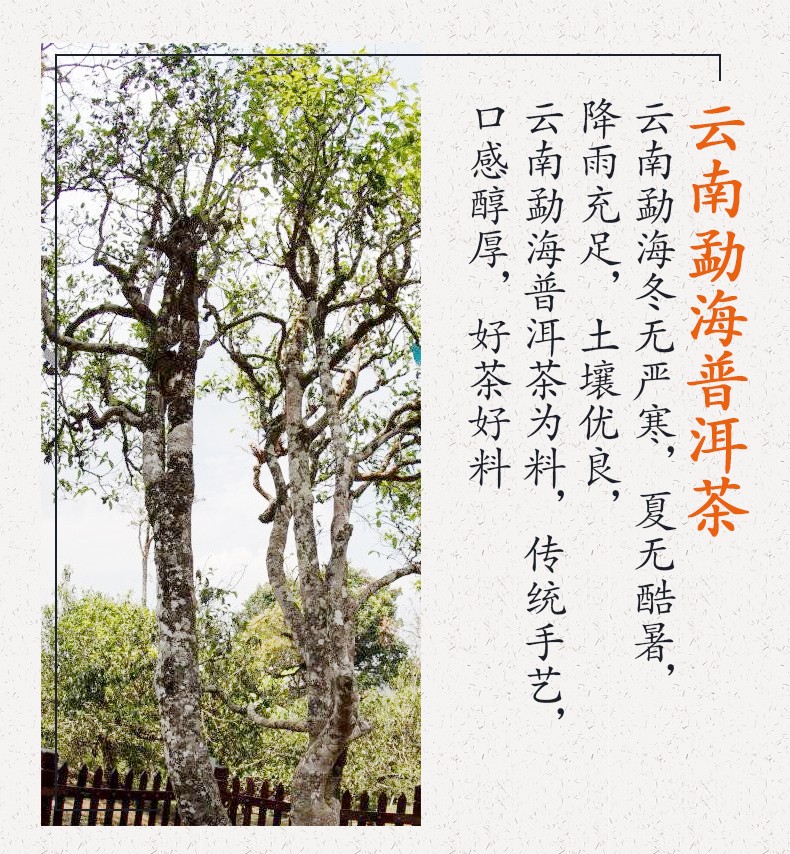 云南勐海普洱茶
云南勐海冬无严寒，夏无酷暑，
降雨充足，土壤优良，
云南勐海普洱茶为料，传统手艺，
口感醇厚，好茶好料